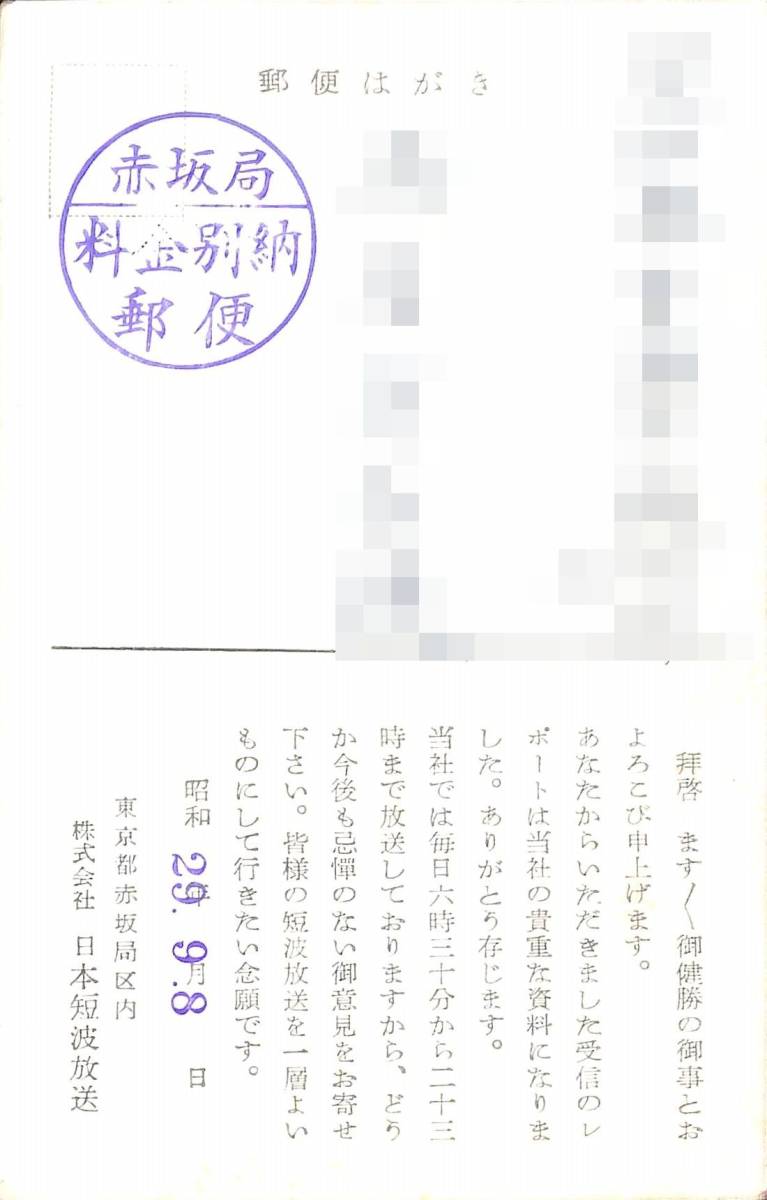 郵便はがき
赤坂局
料金別納
郵便
拝啓 ます〳〵御健勝の御事とお
よろこび申上げます。
あなたからいただきました受信のレ
ポートは当社の貴重な資料になりま
した。ありがとう存じます。
当社では毎日六時三十分から二十三
時まで放送しておりますから、どう
か今後も忌憚のない御意見をお寄せ
下さい。皆様の短波放送を一層よい
ものにして行きたい念願です。
昭和29年9月8日
東京都赤坂局区内
株式会社 日本短波放送